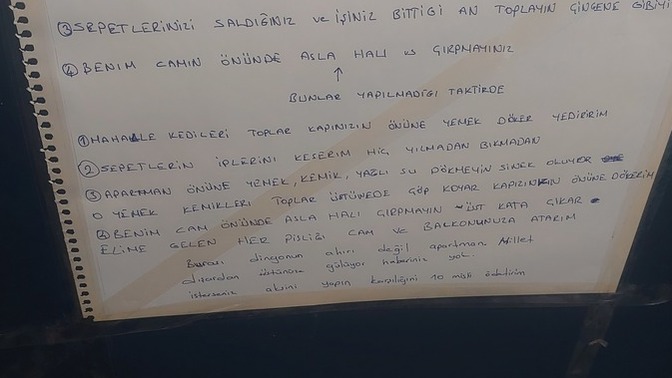 ③ SEPETLERİNİZİ SALDIĞINIZ ve İŞİNİZ BİTTİGİ AN TOPLAYIN ÇİNGENE GİBİYİ
④ BENIM CAMIN ÖNÜNDE ASLA HALI vs GIRPMAYINIZ
↑
BUNLAR YAPILMADIGI TAKTİRDE
① MAHALLE KEDILERİ TOPLAR KAPINIZIN ÖNÜNE YEMEK DÖKER YEDIRIRIM
② SEPETLERİN İPLERİNİ KESERIM HİÇ YILMADAN BIKMADAN
③ APARTMAN ÖNÜNE YEMEK, KEMİK, YAĞLI SU DÖKMEYİN SİNEK OLUYOR
O YEMEK KEMIKLERI TOPLAR ÜSTÜNEDE ÇÖP KOYAR KAPIZININ ÖNÜNE DÖKERIM
④ BENİM CAM ÖNÜNDE ASLA HALI GIRPMAYIN ÜST KATA ÇIKAR
ELİME GELEN HER PİSLİĞİ CAM VE BALKONUNUZA ATARIM
Burası dingonun ahırı değil apartman Millet
dısardan üstünüze gülüyor haberiniz yok.
isterseniz aksini yapın karşılığını 10 misli ödetirim